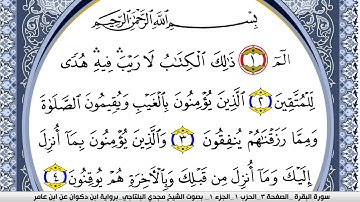 بِسْمِ اللَّهِ الرَّحْمَٰنِ الرَّحِيمِ
الٓمٓ ١ ذَٰلِكَ الْكِتَٰبُ لَا رَيْبَۛ فِيهِۛ هُدًى
لِلْمُتَّقِينَ ٢ الَّذِينَ يُؤْمِنُونَ بِالْغَيْبِ وَيُقِيمُونَ الصَّلَوٰةَ
وَمِمَّا رَزَقْنَٰهُمْ يُنفِقُونَ ٣ وَالَّذِينَ يُؤْمِنُونَ بِمَا أُنزِلَ
إِلَيْكَ وَمَا أُنزِلَ مِن قَبْلِكَ وَبِالْأَخِرَةِ هُمْ يُوقِنُونَ ٤
سورة البقرة _ الصفحة ٣_ الحزب ١_ الجزء ١_ بصوت الشيخ مجدي البلتاجي_ برواية ابن ذكوان عن ابن عامر